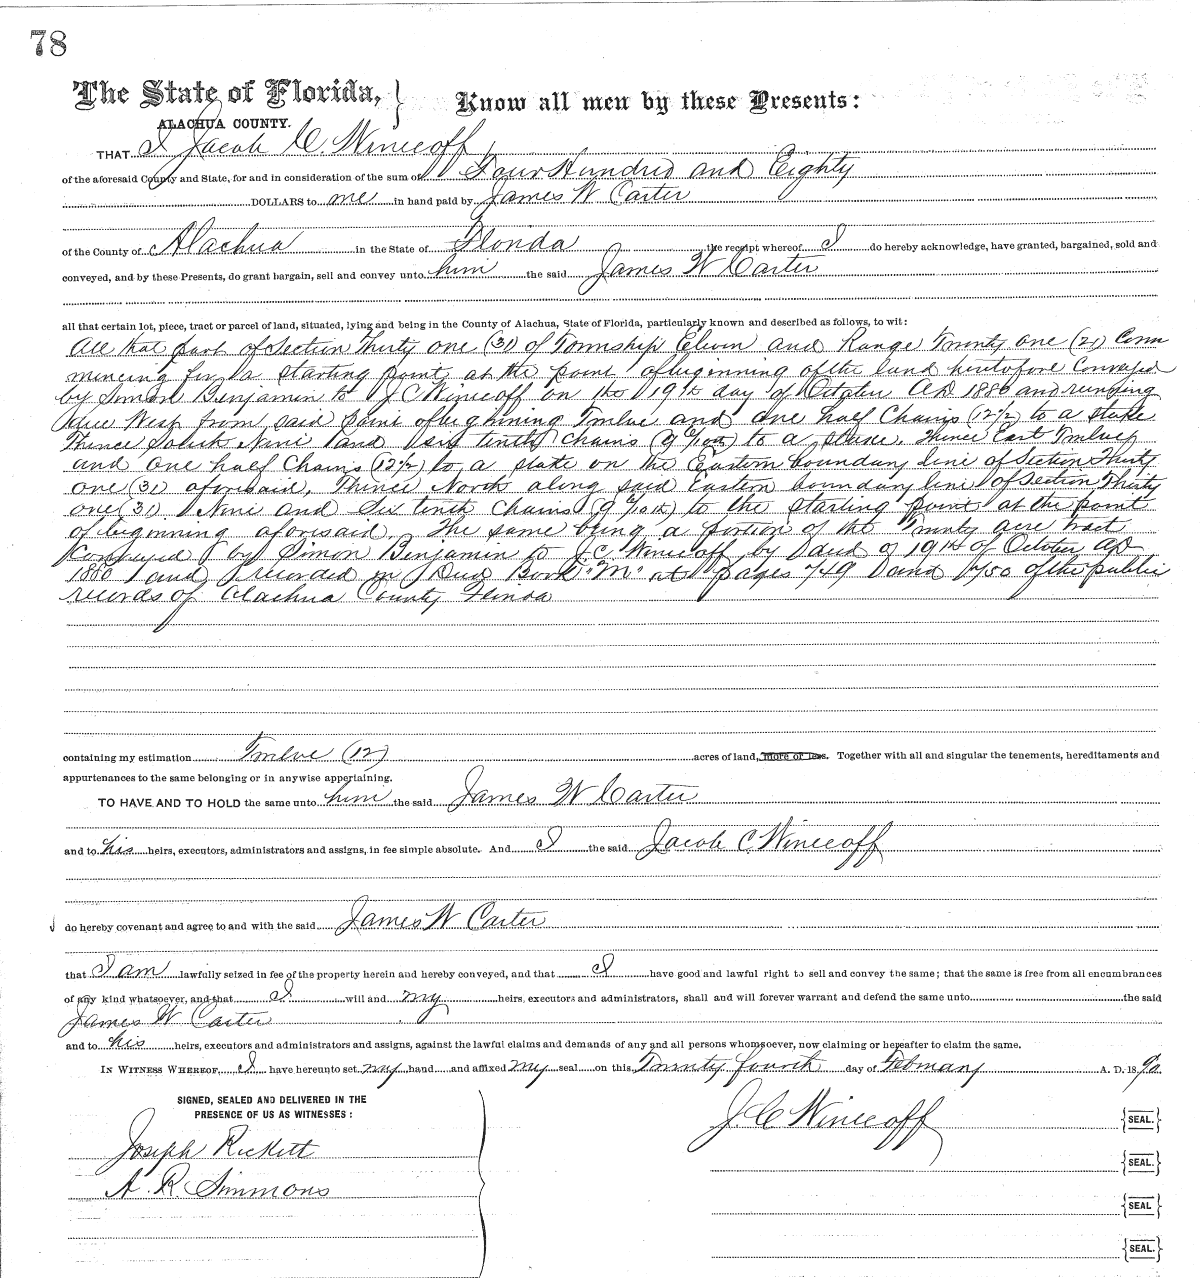 78
The State of Florida, }
ALACHUA COUNTY.
Know all men by these Presents:
THAT I Jacob C. Winecoff
of the aforesaid County and State, for and in consideration of the sum of Four Hundred and Eighty
DOLLARS to me in hand paid by James W Carter
of the County of Alachua in the State of Florida the receipt whereof I do hereby acknowledge, have granted, bargained, sold and
conveyed, and by these Presents, do grant bargain, sell and convey unto him the said James W Carter
all that certain lot, piece, tract or parcel of land, situated, lying and being in the County of Alachua, State of Florida, particularly known and described as follows, to wit:
All that part of Section Thirty one (31) of Township Eleven and Range Twenty one (21) Com
mencing for a starting point, at the point of beginning of the land heretofore Conveyed
by Simon Benjamin to J C Winecoff on the 19th day of October AD 1880 and running
due West from said point of beginning Twelve and one half Chains (12½) to a stake
Thence South Nine and six tenths chains (9 6/10th) to a stake, Thence East Twelve
and one half Chains (12½) to a stake on the Eastern boundary line of Section Thirty
one (31) aforesaid, Thence North along said Eastern boundary line of Section Thirty
one (31) Nine and Six tenth Chains (9 6/10th) to the starting point at the point
of beginning aforesaid. The same being a portion of the Twenty acre tract
Conveyed by Simon Benjamin to J.C. Winecoff by deed of 19th of October AD
1880 and recorded in Deed Book "M" at pages 749 and 750 of the public
records of Alachua County Florida
containing my estimation Twelve (12) acres of land, more or less. Together with all and singular the tenements, hereditaments and
appurtenances to the same belonging or in anywise appertaining.
TO HAVE AND TO HOLD the same unto him the said James W Carter
and to his heirs, executors, administrators and assigns, in fee simple absolute. And I the said Jacob C Winecoff
do hereby covenant and agree to and with the said James W Carter
that I am lawfully seized in fee of the property herein and hereby conveyed, and that I have good and lawful right to sell and convey the same; that the same is free from all encumbrances
of any kind whatsoever, and that I will and my heirs, executors and administrators, shall and will forever warrant and defend the same unto the said
James W Carter
and to his heirs, executors and administrators and assigns, against the lawful claims and demands of any and all persons whomsoever, now claiming or hereafter to claim the same.
IN WITNESS WHEREOF, I have hereunto set my hand and affixed my seal on this Twenty fourth day of February A. D. 1890.
SIGNED, SEALED AND DELIVERED IN THE
PRESENCE OF US AS WITNESSES:
J. C Winecoff {SEAL.}
Joseph Rickett
{SEAL.}
A. R. Simmons
{SEAL}
{SEAL.}